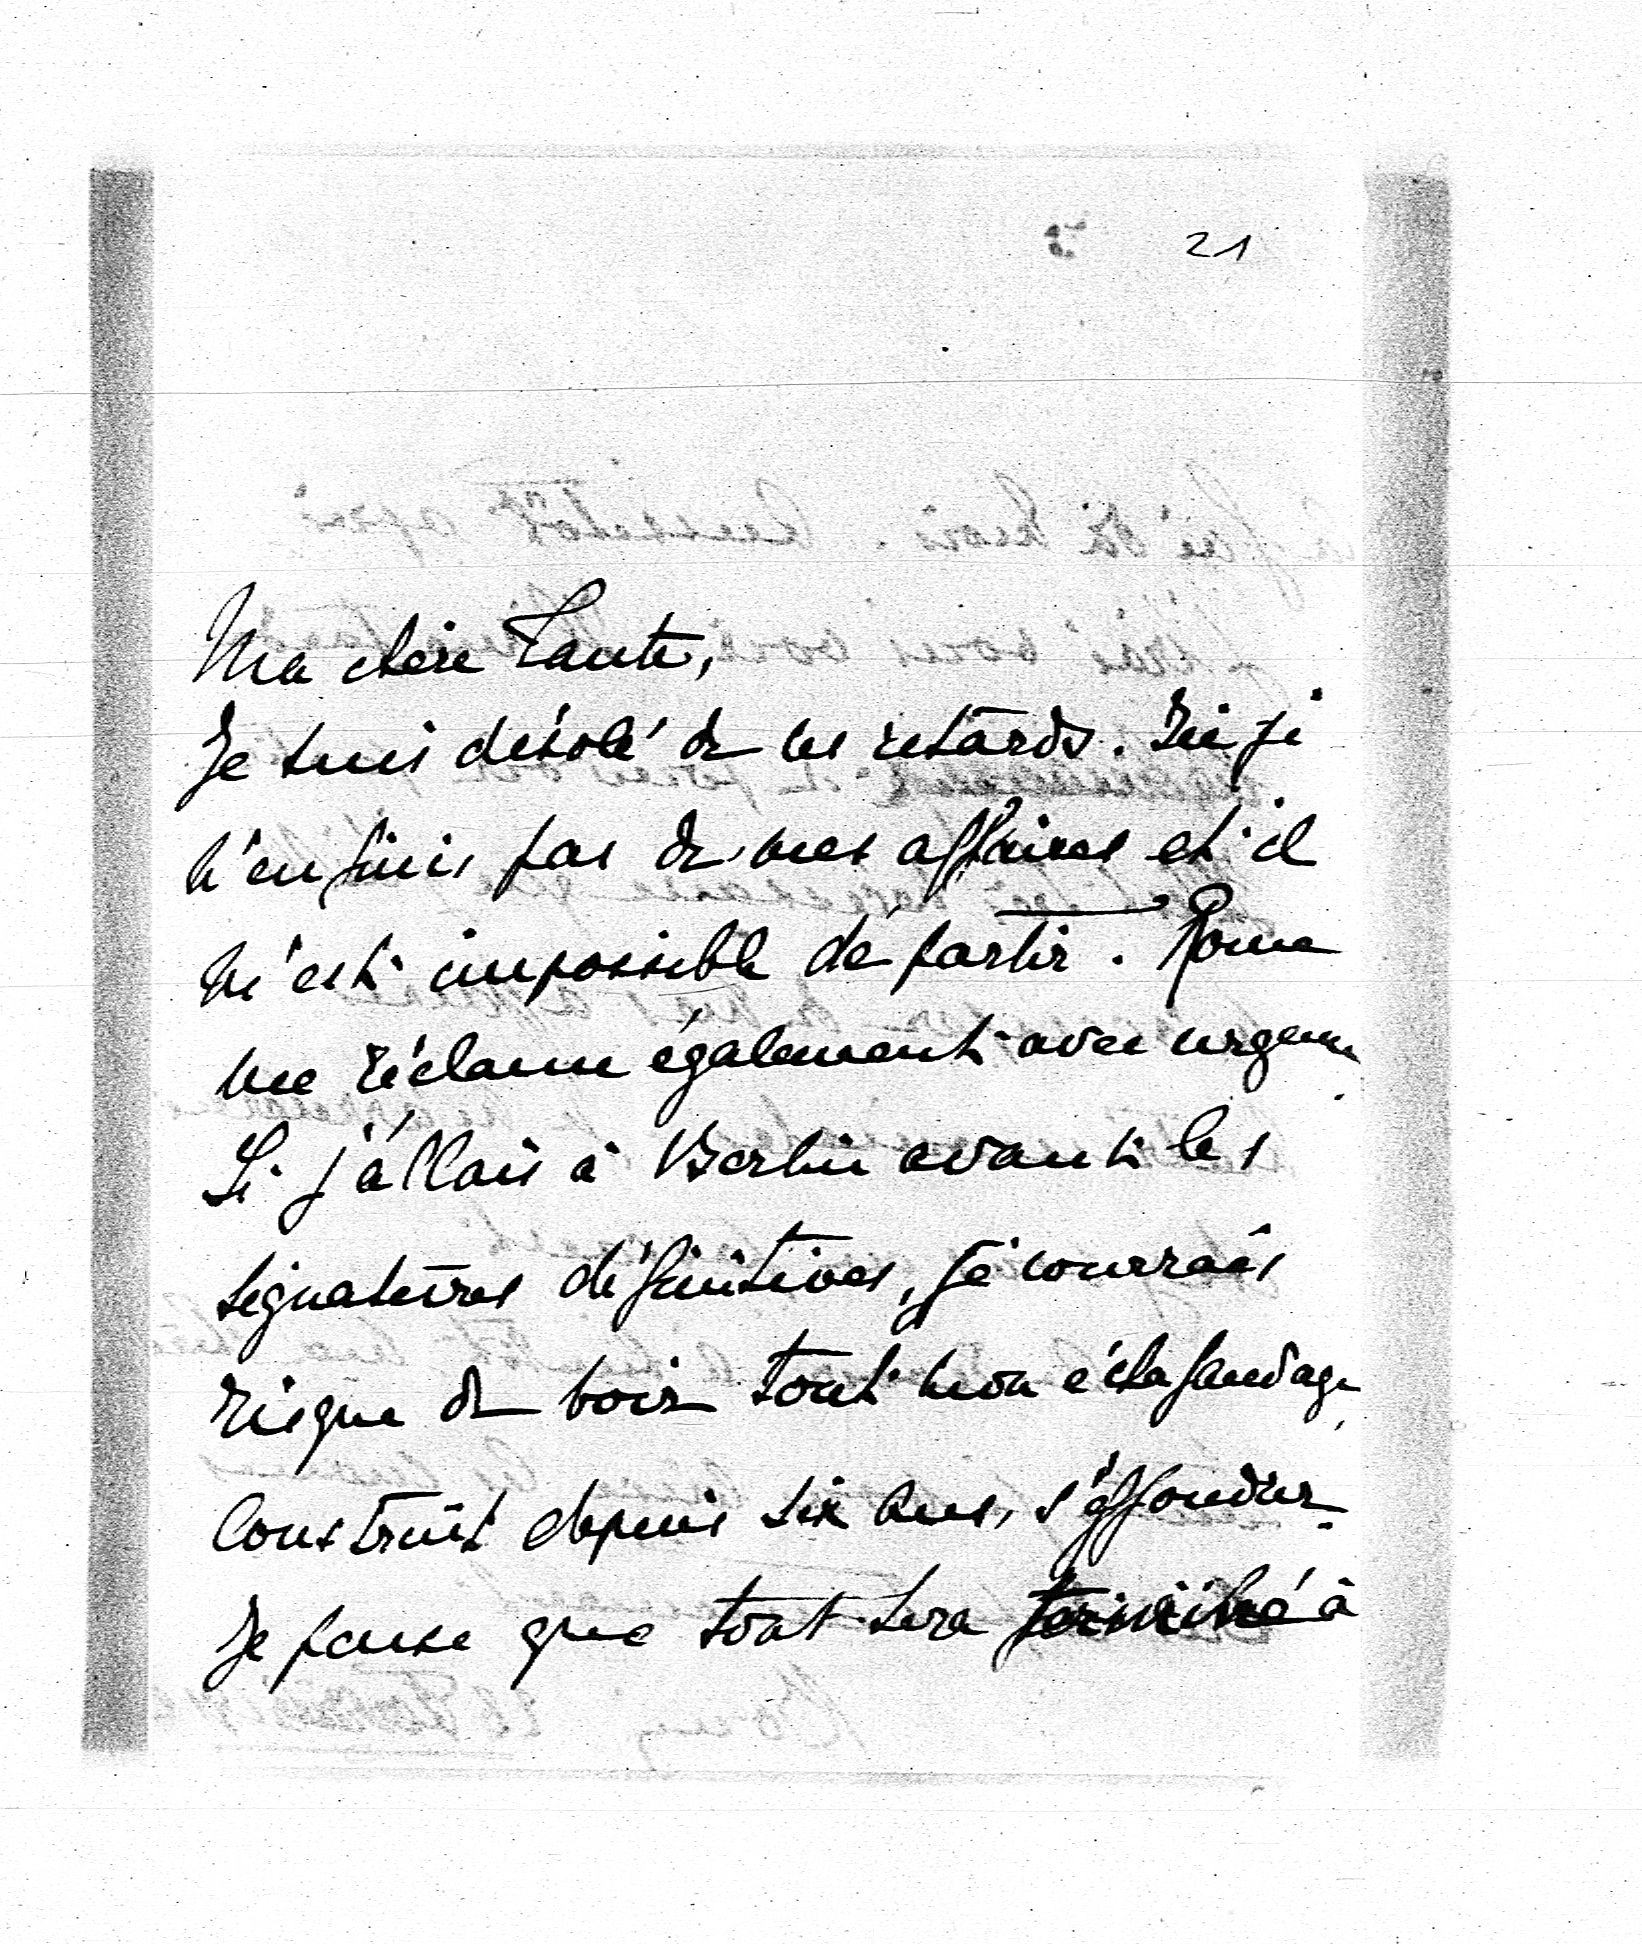 21
Ma chère Tante,
Je suis désolé de ces retards. Ici je
n'en finis pas de mes affaires et il
m'est impossible de partir. Rome
me réclame également avec urgence.
Si j'allais à Berlin avant les
signatures définitives, je courrais
risque de voir tout mon échafaudage,
construit depuis six ans, s'effondrer.
Je pense que tout sera terminé à